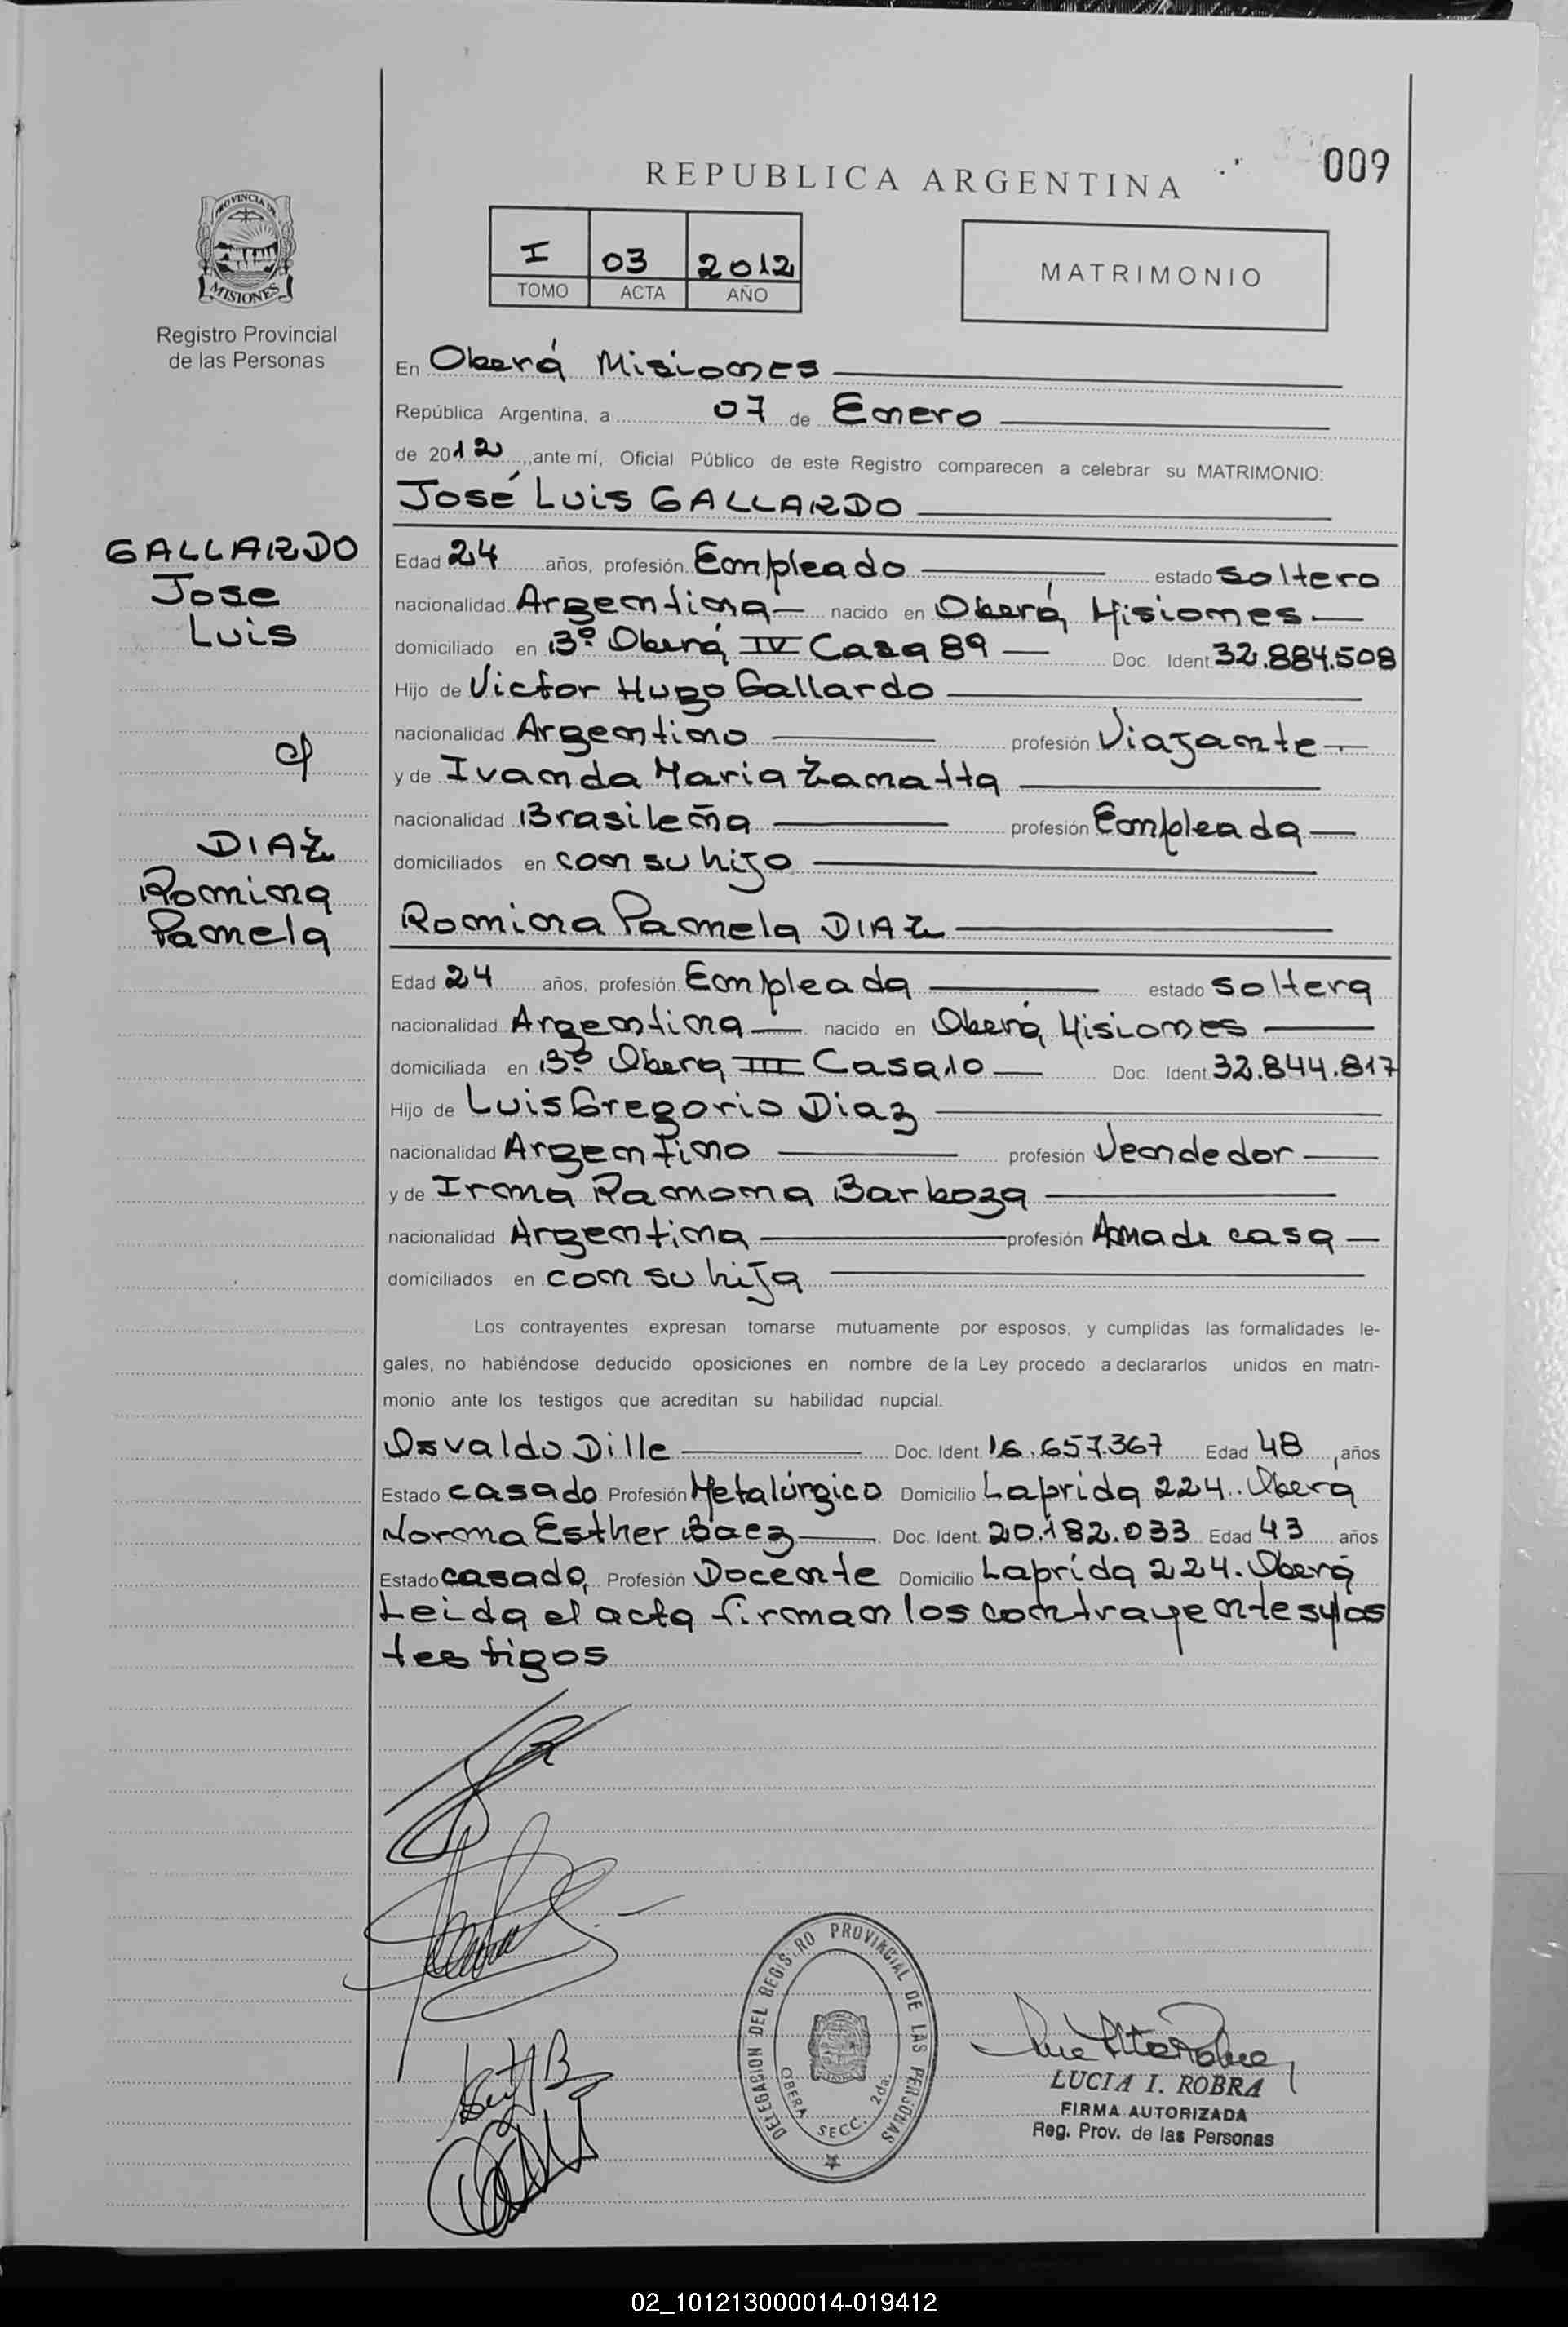 REPUBLICA ARGENTINA
009
PROVINCIA DE
MISIONES
Registro Provincial
de las Personas
I 03 2012
TOMO ACTA AÑO
MATRIMONIO
En Oberá Misiones
República Argentina, a 07 de Enero
de 2012, ante mí, Oficial Público de este Registro comparecen a celebrar su MATRIMONIO:
José Luis GALLARDO
GALLARDO
Jose
Luis
c/
DIAZ
Romina
Pamela
Edad 24 años, profesión Empleado estado soltero
nacionalidad Argentina nacido en Oberá Misiones
domiciliado en Bº Oberá IV Casa 89 Doc. Ident. 32.884.508
Hijo de Victor Hugo Gallardo
nacionalidad Argentino profesión Viajante
y de Ivanda Maria Zanatta
nacionalidad Brasileña profesión Empleada
domiciliados en con su hijo
Romina Pamela DIAZ
Edad 24 años, profesión Empleada estado soltera
nacionalidad Argentina nacido en Oberá Misiones
domiciliada en Bº Obera III Casa 10 Doc. Ident. 32.844.817
Hijo de Luis Gregorio Diaz
nacionalidad Argentino profesión Vendedor
y de Irma Ramona Barboza
nacionalidad Argentina profesión Ama de casa
domiciliados en con su hija
Los contrayentes expresan tomarse mutuamente por esposos, y cumplidas las formalidades le-
gales, no habiéndose deducido oposiciones en nombre de la Ley procedo a declararlos unidos en matri-
monio ante los testigos que acreditan su habilidad nupcial.
Osvaldo Dille Doc. Ident. 16.657.367 Edad 48 años
Estado casado Profesión Metalúrgico Domicilio Laprida 224. Obera
Norma Esther Baez Doc. Ident. 20.182.033 Edad 43 años
Estado casado Profesión Docente Domicilio Laprida 224. Oberá
Leida el acta firman los contrayentes y los
testigos
DELEGACION DEL REGISTRO PROVINCIAL DE LAS PERSONAS
OBERA SECC. 2da.
LUCIA I. ROBRA
FIRMA AUTORIZADA
Reg. Prov. de las Personas
02_101213000014-019412